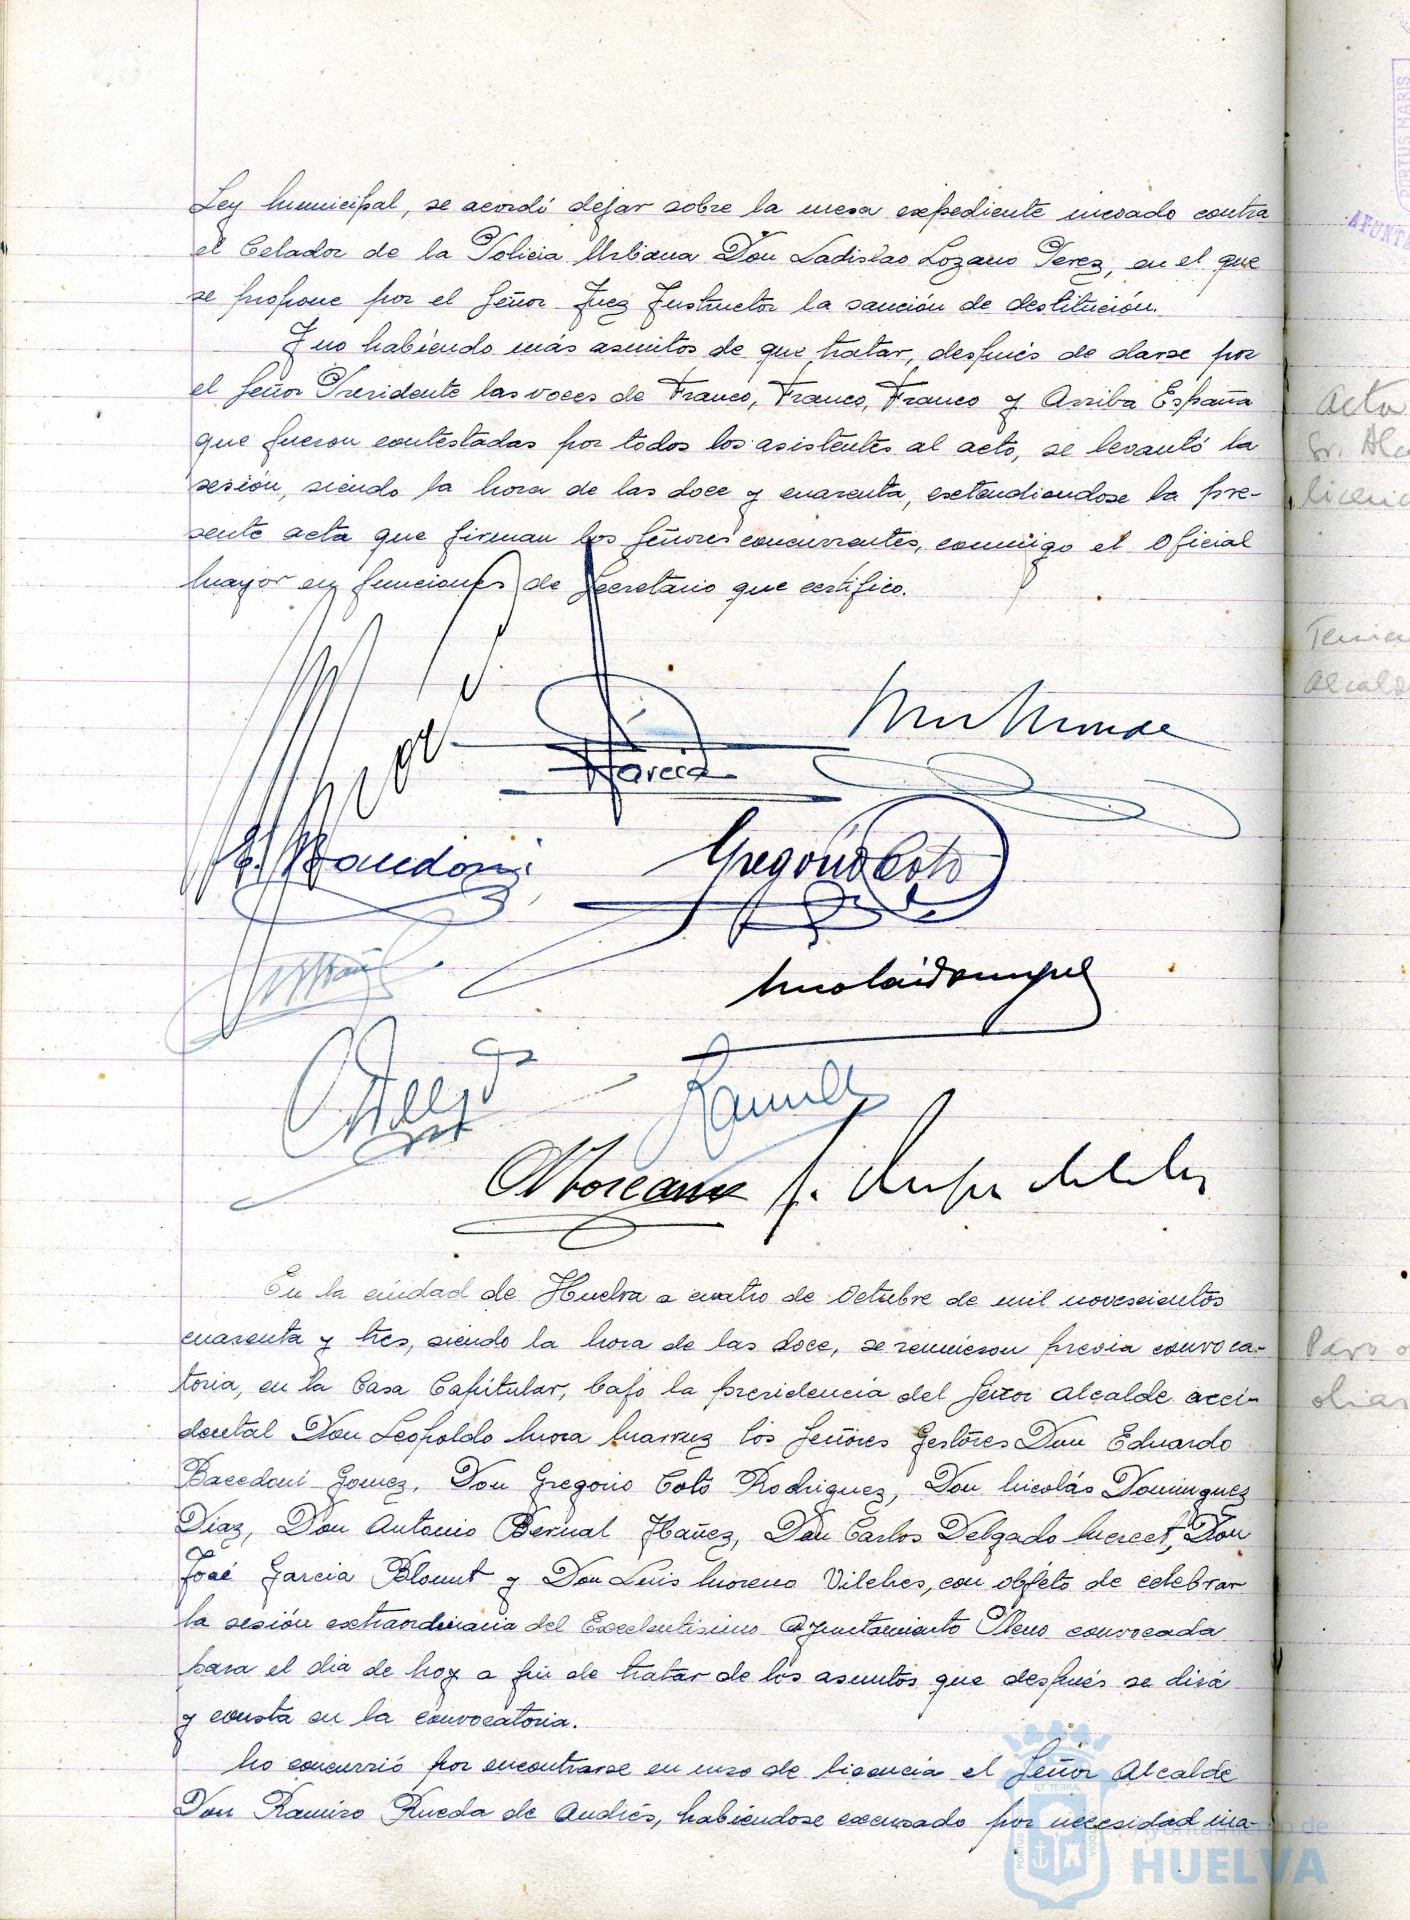 Ley Municipal, se acordó dejar sobre la mesa expediente incoado contra
el Celador de la Policia Urbana Don Ladislao Lozano Perez, en el que
se propone por el Señor Juez Instructor la sanción de destitución.
Y no habiendo más asuntos de que tratar, después de darse por
el Señor Presidente las voces de Franco, Franco, Franco y Arriba España
que fueron contestadas por todos los asistentes al acto, se levantó la
sesión, siendo la hora de las doce y cuarenta, extendiendose la pre-
sente acta que firman los Señores concurrentes, conmigo el Oficial
Mayor en funciones de Secretario que certifico.
García
E. Bacedoni
Gregorio Coto
Nicolás Dominguez
En la ciudad de Huelva a cuatro de Octubre de mil novescientos
cuarenta y tres, siendo la hora de las doce, se reunieron previa convoca-
toria, en la Casa Capitular, bajo la presidencia del Señor Alcalde acci-
dental Don Leopoldo Mora Marruz los Señores Gestores Don Eduardo
Bacedoni Gomez, Don Gregorio Coto Rodriguez, Don Nicolás Dominguez
Diaz, Don Antonio Bernal Ibañez, Don Carlos Delgado Mercet, Don
José Garcia Blount y Don Luis Moreno Vilches, con objeto de celebrar
la sesión extraordinaria del Excelentisimo Ayuntamiento Pleno convocada
para el dia de hoy a fin de tratar de los asuntos que después se dirá
y consta en la convocatoria.
No concurrió por encontrarse en uso de licencia el Señor Alcalde
Don Ramiro Rueda de Andrés, habiendose excusado por necesidad ina-
Ayuntamiento de
HUELVA
PORTUS MARIS
ET TERRA
Acta
Sr. Alc
licenc
Tenien
Alcald
Paro o